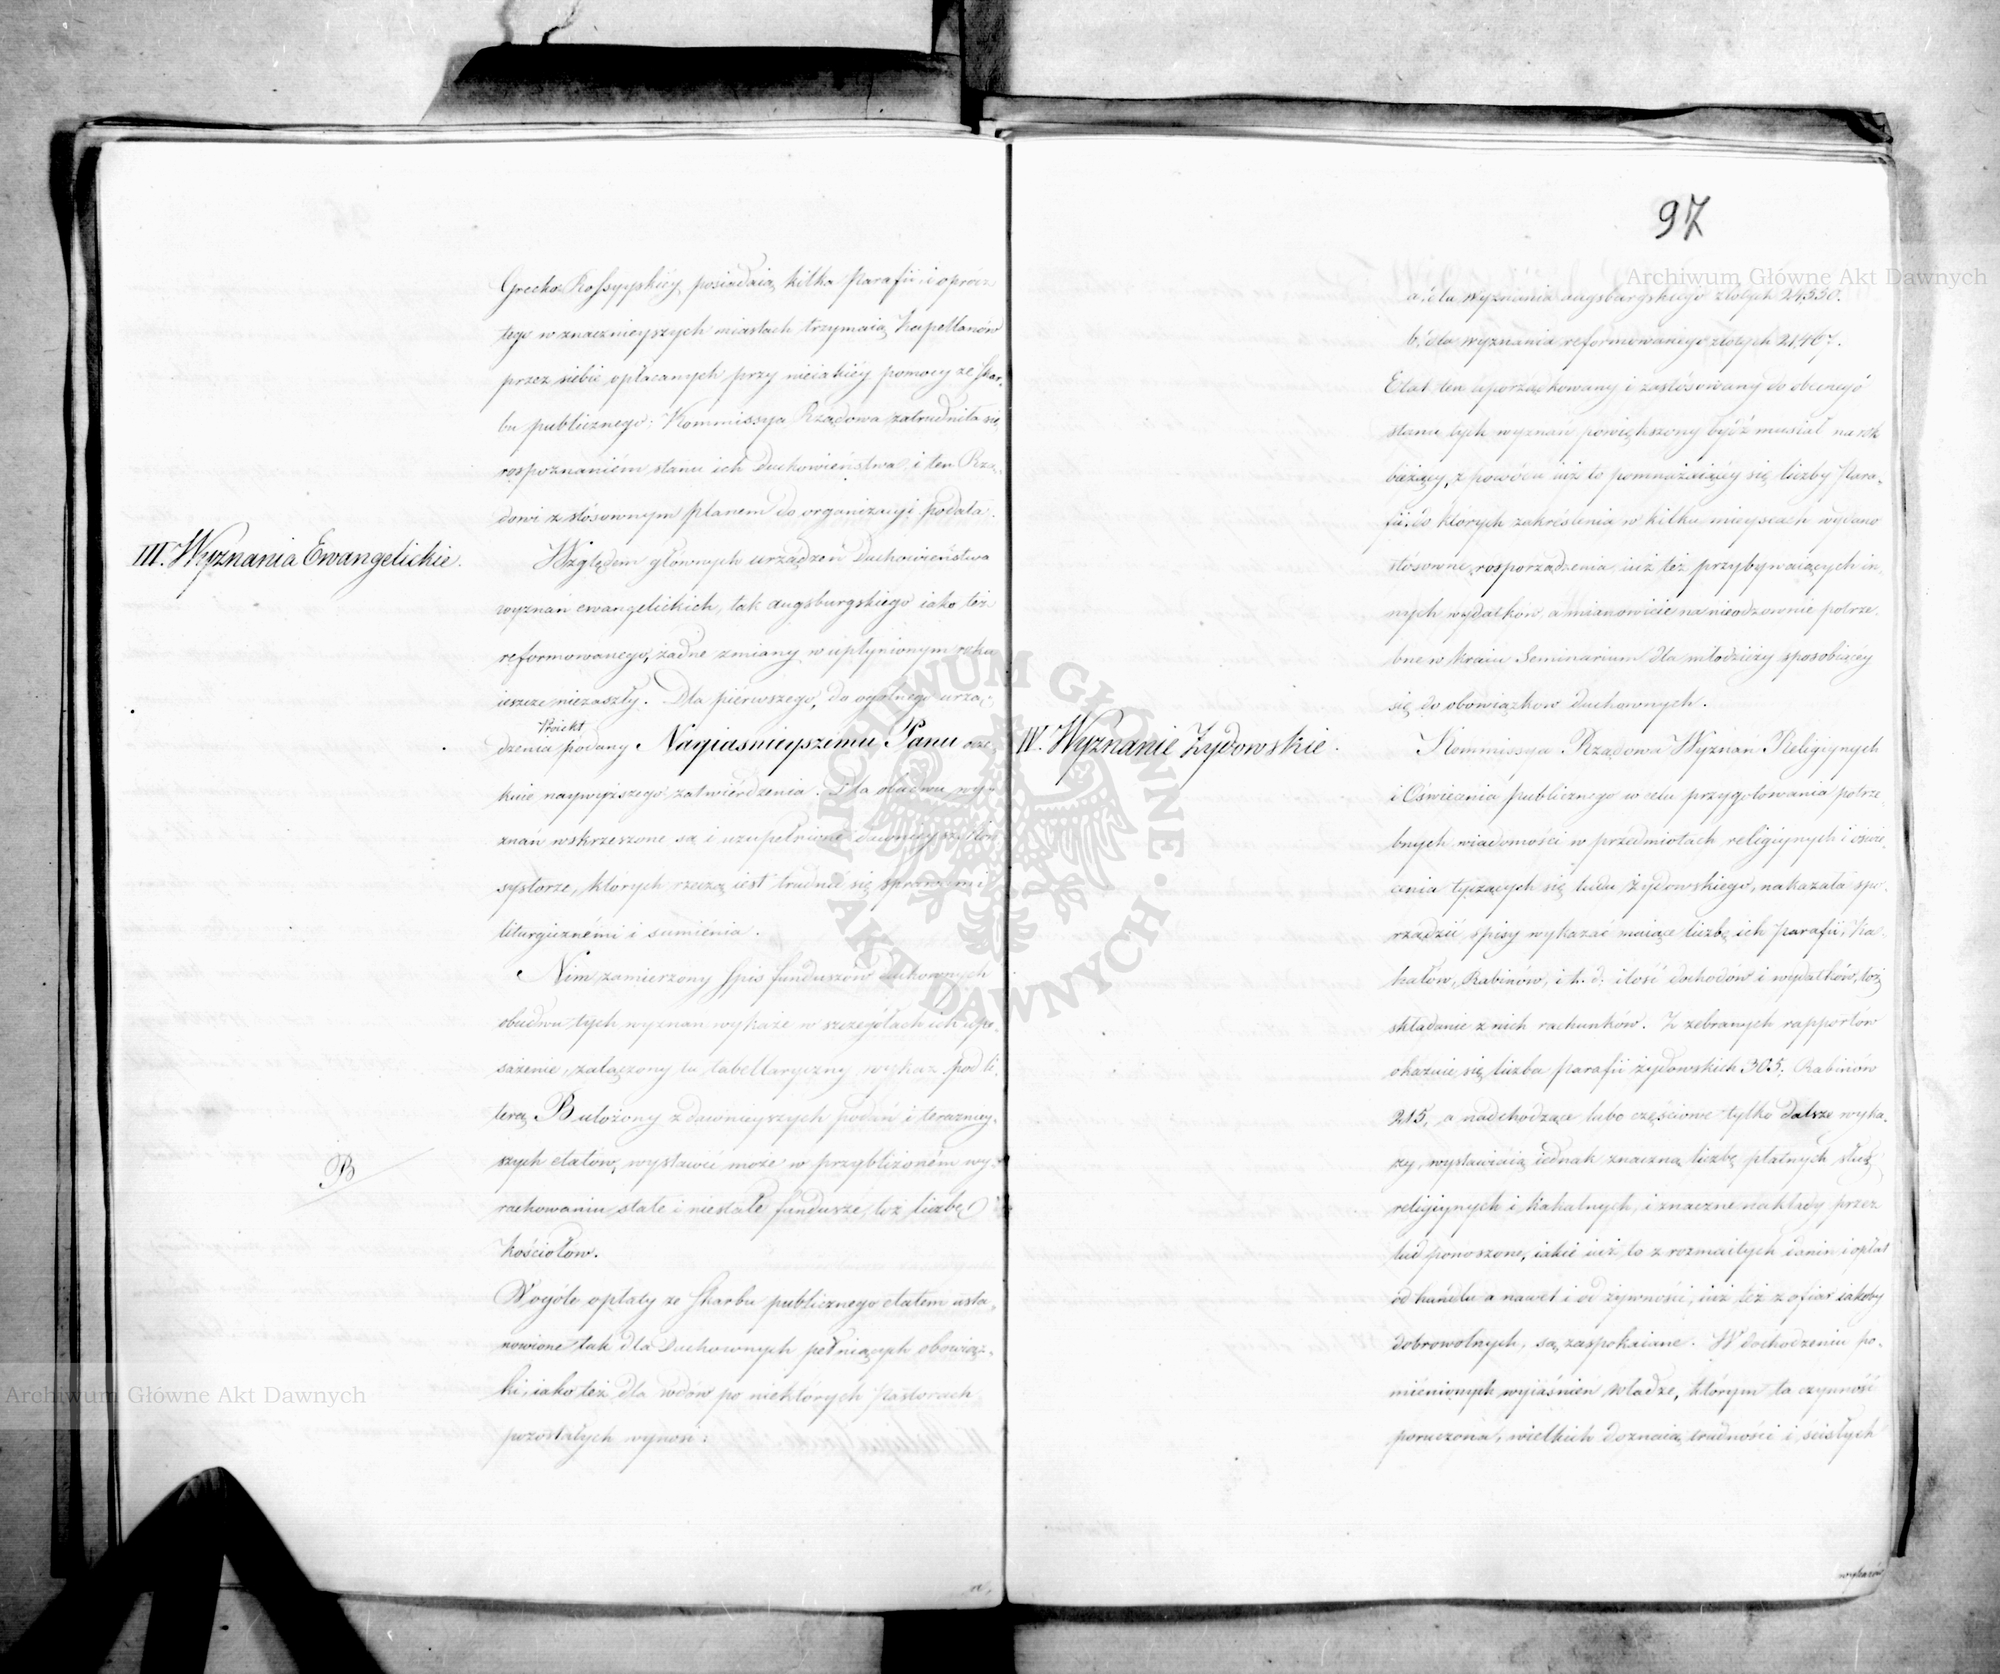 Grecko Rossyyskiéy posiadaią kilka Parafii i oprócz
tego w znacznieyszych miastach trzymaią Kapellanów
przez siebie opłacanych przy nieiakiéy pomocy ze skar-
bu publicznego; Kommissya Rządowa zatrudniła się
rospoznaniém stanu ich Duchowieństwa, i ten Rzą-
dowi z stósownym planem do organizacyi podała.
III. Wyznania Ewangelickie.
Względem głównych urządzeń Duchowieństwa
wyznań ewangelickich, tak augsburgskiego iako też
reformowanego, żadne zmiany w upłynionym roku
ieszcze niezaszły. Dla piérwszego, do ogólnego urzą-
Proiekt
dzenia podany Nayiaśnieyszému Panu ocze-
kuie naywyższego zatwiérdzenia. Dla obudwu wy-
znań wskrzeszone są i uzupełnione dawnieysze Kon-
systorze, których rzeczą iest trudnić się sprawami
liturgicznémi i sumiénia.
Nim zamierzony spis funduszów duchownych
obudwu tych wyznań wykaże w szczegółach ich upo-
sażenie, załączony tu tabellaryczny wykaz pod li-
terą B ułożony z dawnieyszych podań i teraźniey-
szych etatów, wystawić może w przybliżoném wy-
B
rachowaniu stałe i niestałe fundusze, toż liczbę
Kościołów.
W ogóle opłaty ze skarbu publicznego etatem usta-
nowione tak dla Duchownych pełniących obowiąz-
ki, iako też dla wdów po niektórych Pastorach
pozostałych wynosi:
a,
97
a, dla wyznania augsburgskiego złotych 24,330.
b, dla wyznania reformowanego złotych 21,467.
Etat ten uporządkowany i zastósowany do obecnego
stanu tych wyznań powiększony bydź musiał na rok
bieżący, z powodu iuż to pomnażaiącéy się liczby Para-
fii, do których zakréslenia w kilku mieyscach wydano
stósowne rosporządzenia, iuż też przybywaiących in-
nych wydatków, a mianowicie na nieodzownie potrze-
bne w Kraiu Seminarium dla młodzieży sposobiącéy
się do obowiązków duchownych.
IV. Wyznanie Żydowskie.
Kommissya Rządowa Wyznań Religiynych
i Oświecenia Publicznego w celu przygotowania potrze-
bnych wiadomości w przedmiotach religiynych i oświe-
cenia tyczących się ludu żydowskiego, nakazała spo-
rządzić spisy wykazać maiące liczbę ich Parafii, Ka-
hałów, Rabinów, i t. d; ilość dochodów i wydatków, toż
składanie z nich rachunków. Z zebranych rapportów
okazuie się liczba Parafii żydowskich 305, Rabinów
215, a nadchodzące lubo częściowe tylko dalsze wyka-
zy, wystawiaią iednak znaczną liczbę płatnych sług
religiynych i kahalnych, i znaczne nakłady przez
lud ponoszone, iakie iuż to z rozmaitych danin i opłat
od handlu a nawet i od żywności, iuż też z ofiar iakoby
dobrowolnych, są zaspokaiane. W dochodzeniu po-
mienionych wyiaśnień władze, którym ta czynność
poruczona, wielkich doznaią trudności i ścisłych
wykazów
Archiwum Główne Akt Dawnych
Archiwum Główne Akt Dawnych
ARCHIWUM GŁÓWNE · AKT DAWNYCH ·